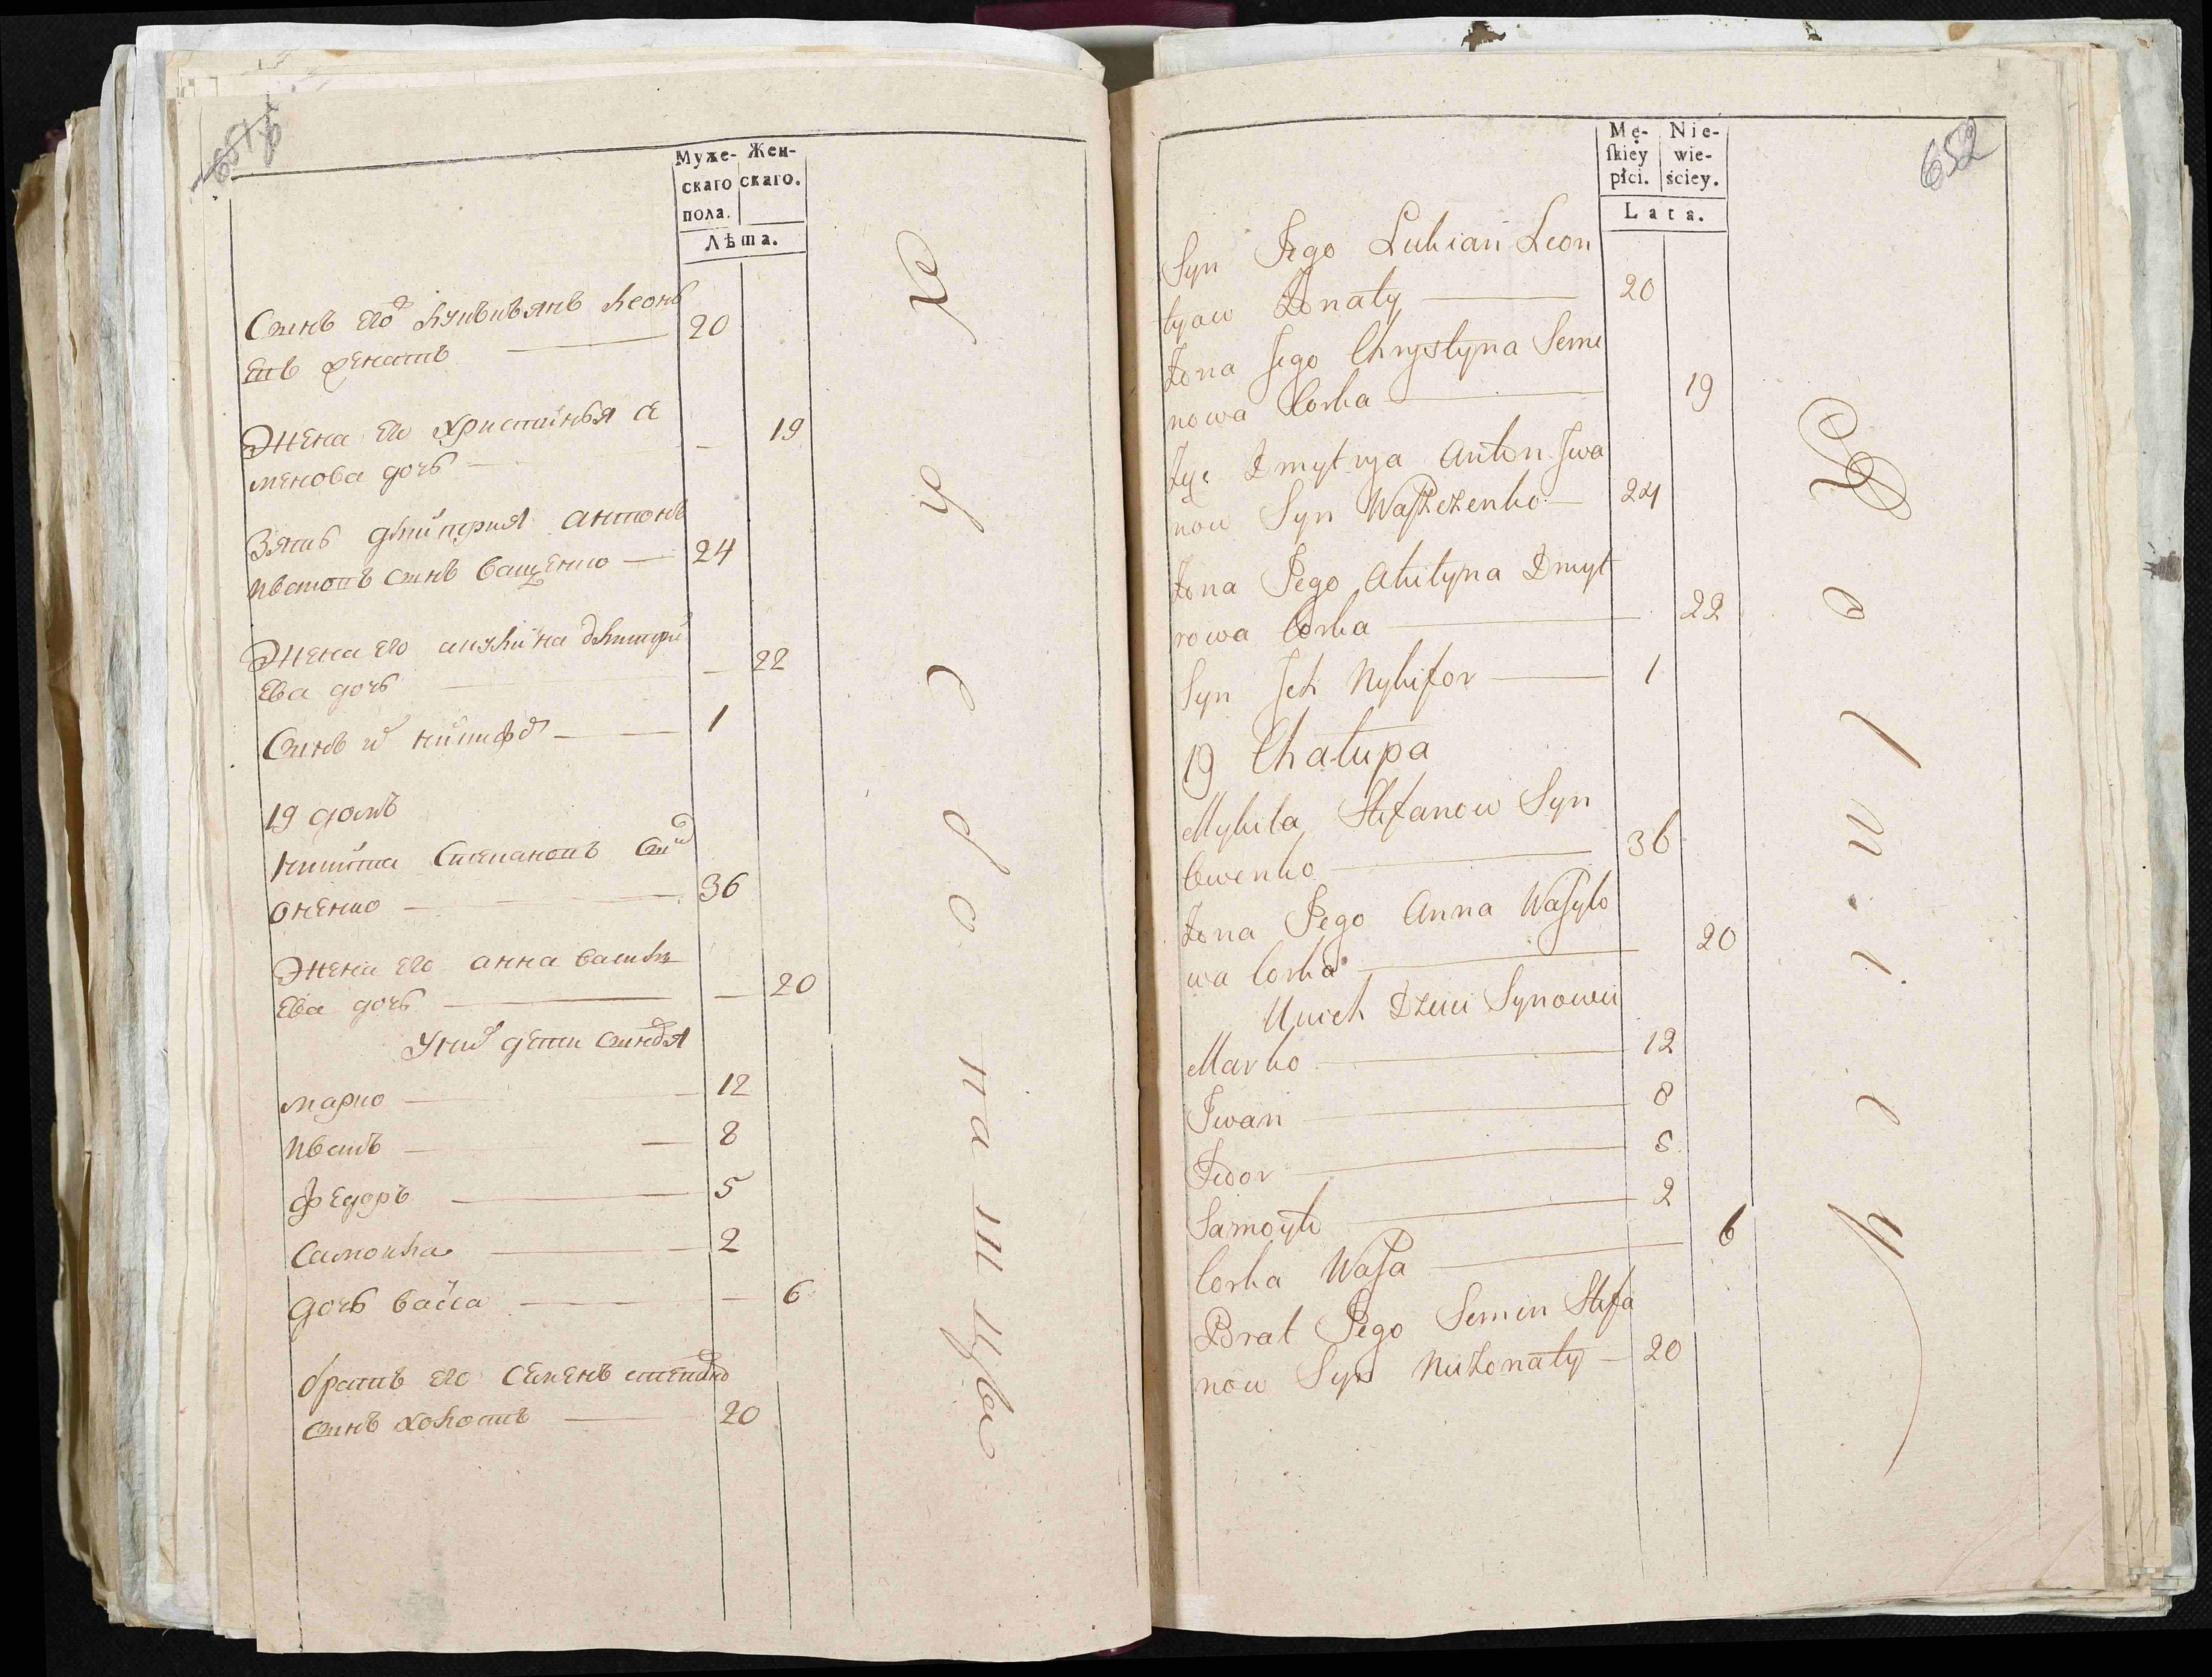 Муже- Жен-
скаго скаго.
пола.
Лѣта.
Синъ его Лукьянъ Леонъ
евъ женатъ 20
Жена его христинья се
менова дочь 19
Зять дмитрия антонъ
ивановъ синъ ващенко 24
Жена его акулина дмитри
ева дочь 22
Синъ их никифор 1
19 домъ
никита Степановъ син
оненко 36
Жена его анна василь
ева дочь 20
У них дети синовя
марко 12
иванъ 8
федоръ 5
самоила 2
дочь васса 6
братъ его семенъ степано
синъ холостъ 20
652
Mę- Nie-
ſkiey wie-
płci. ściey.
Lata.
Syn Jego Lukian Leon
tyaw Żonaty 20
Żona Jego Chrystyna Seme
nowa Corka 19
Zęc Dmytrya Anton Iwa
now Syn Waszczenko 24
Żona Jego Akulyna Dmyt
rowa Corka 22
Syn Jch Nykifor 1
19 Chałupa
Mykita Stefanow Syn
36
Żona Jego Anna Wasylo
wa Corka 20
U nich Dzieci Synowei
Marko 12
Iwan 8
Fedor 5
Samoyło 2
Corka Wasa 6
Brat Jego Semen Stefa
now Syn Nieżonaty 20